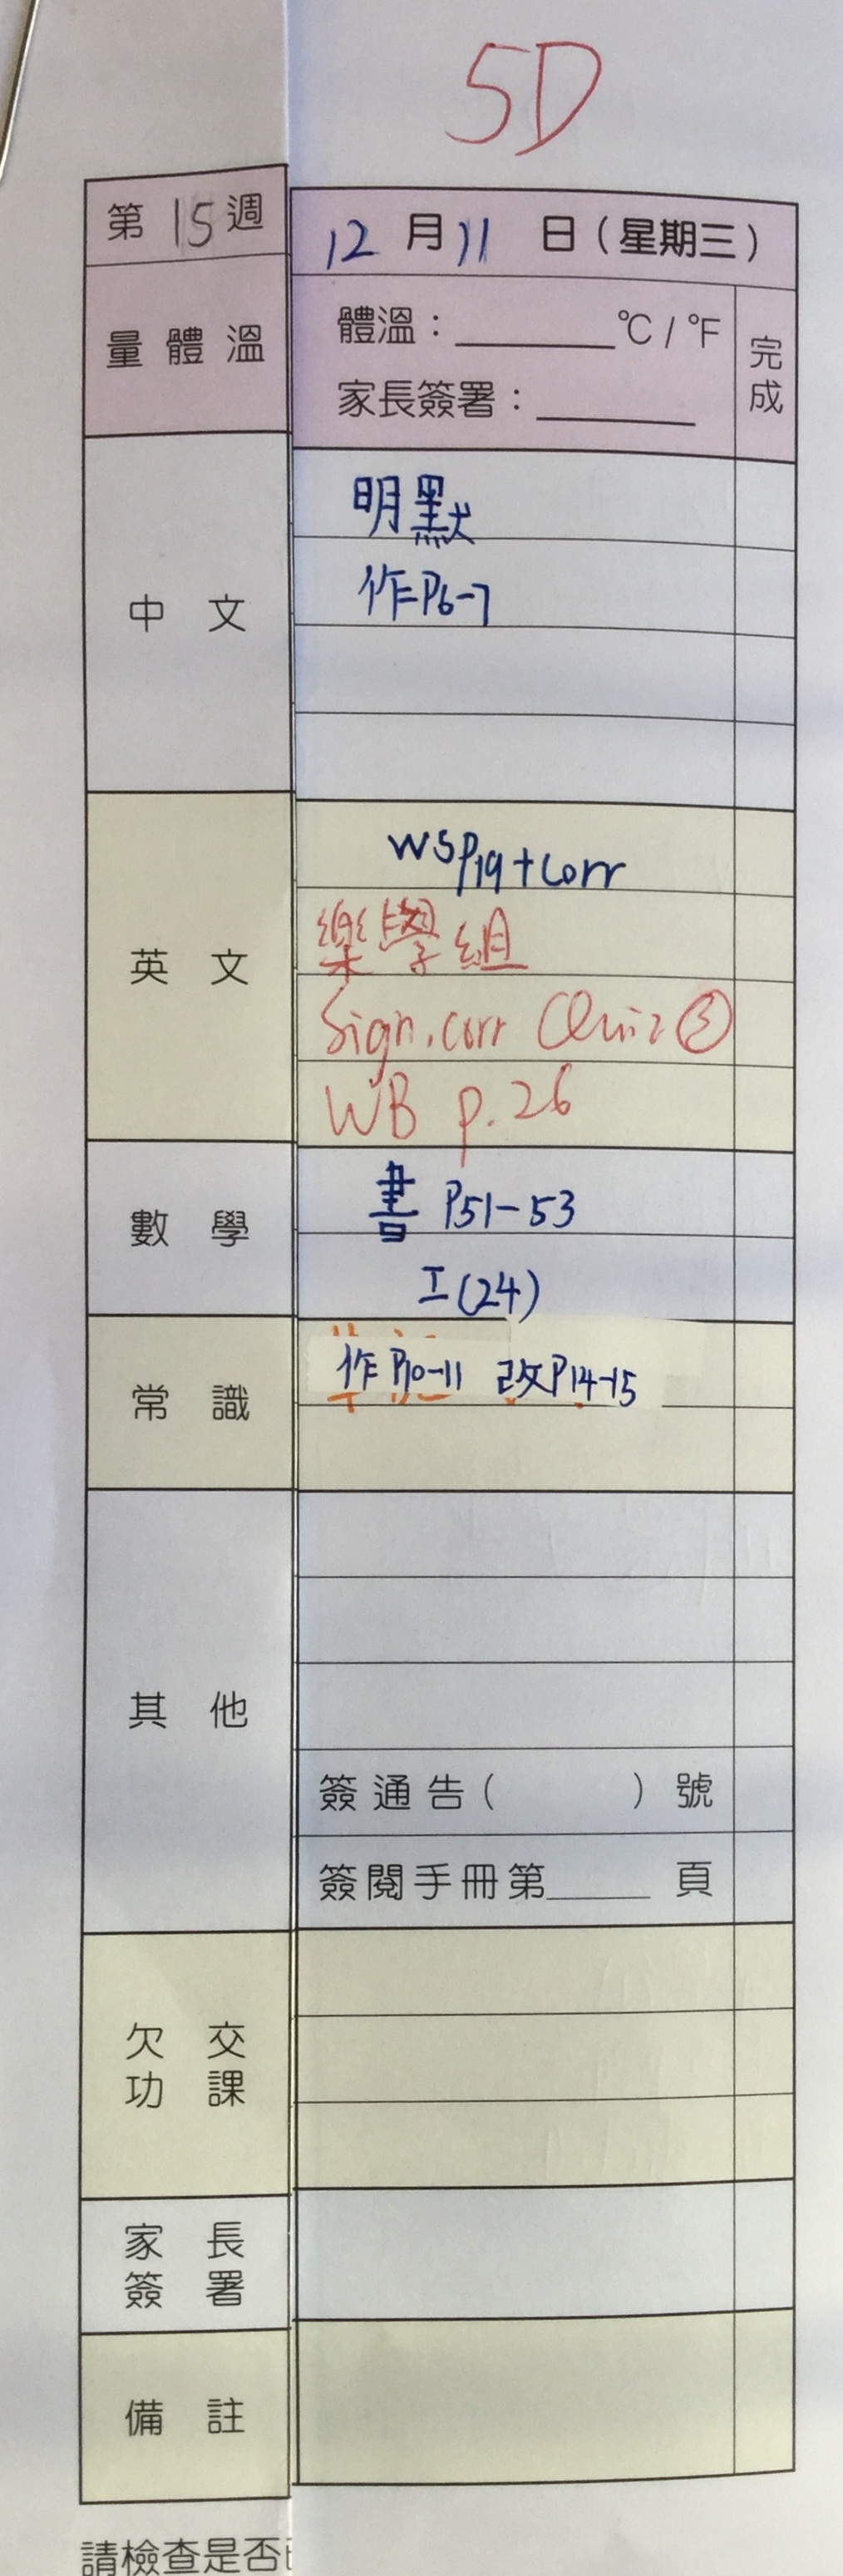 5D
第15週
12月11日(星期三)
量體溫
體溫：______℃/℉
家長簽署：______
完成
中文
明默
作P6-7
英文
WSP19+Corr
樂學組
Sign, corr Quiz ③
WB p.26
數學
書 P51-53
工(24)
常識
作P10-11 改P14-15
其他
簽通告( )號
簽閱手冊第______頁
欠交功課
家長簽署
備註
請檢查是否